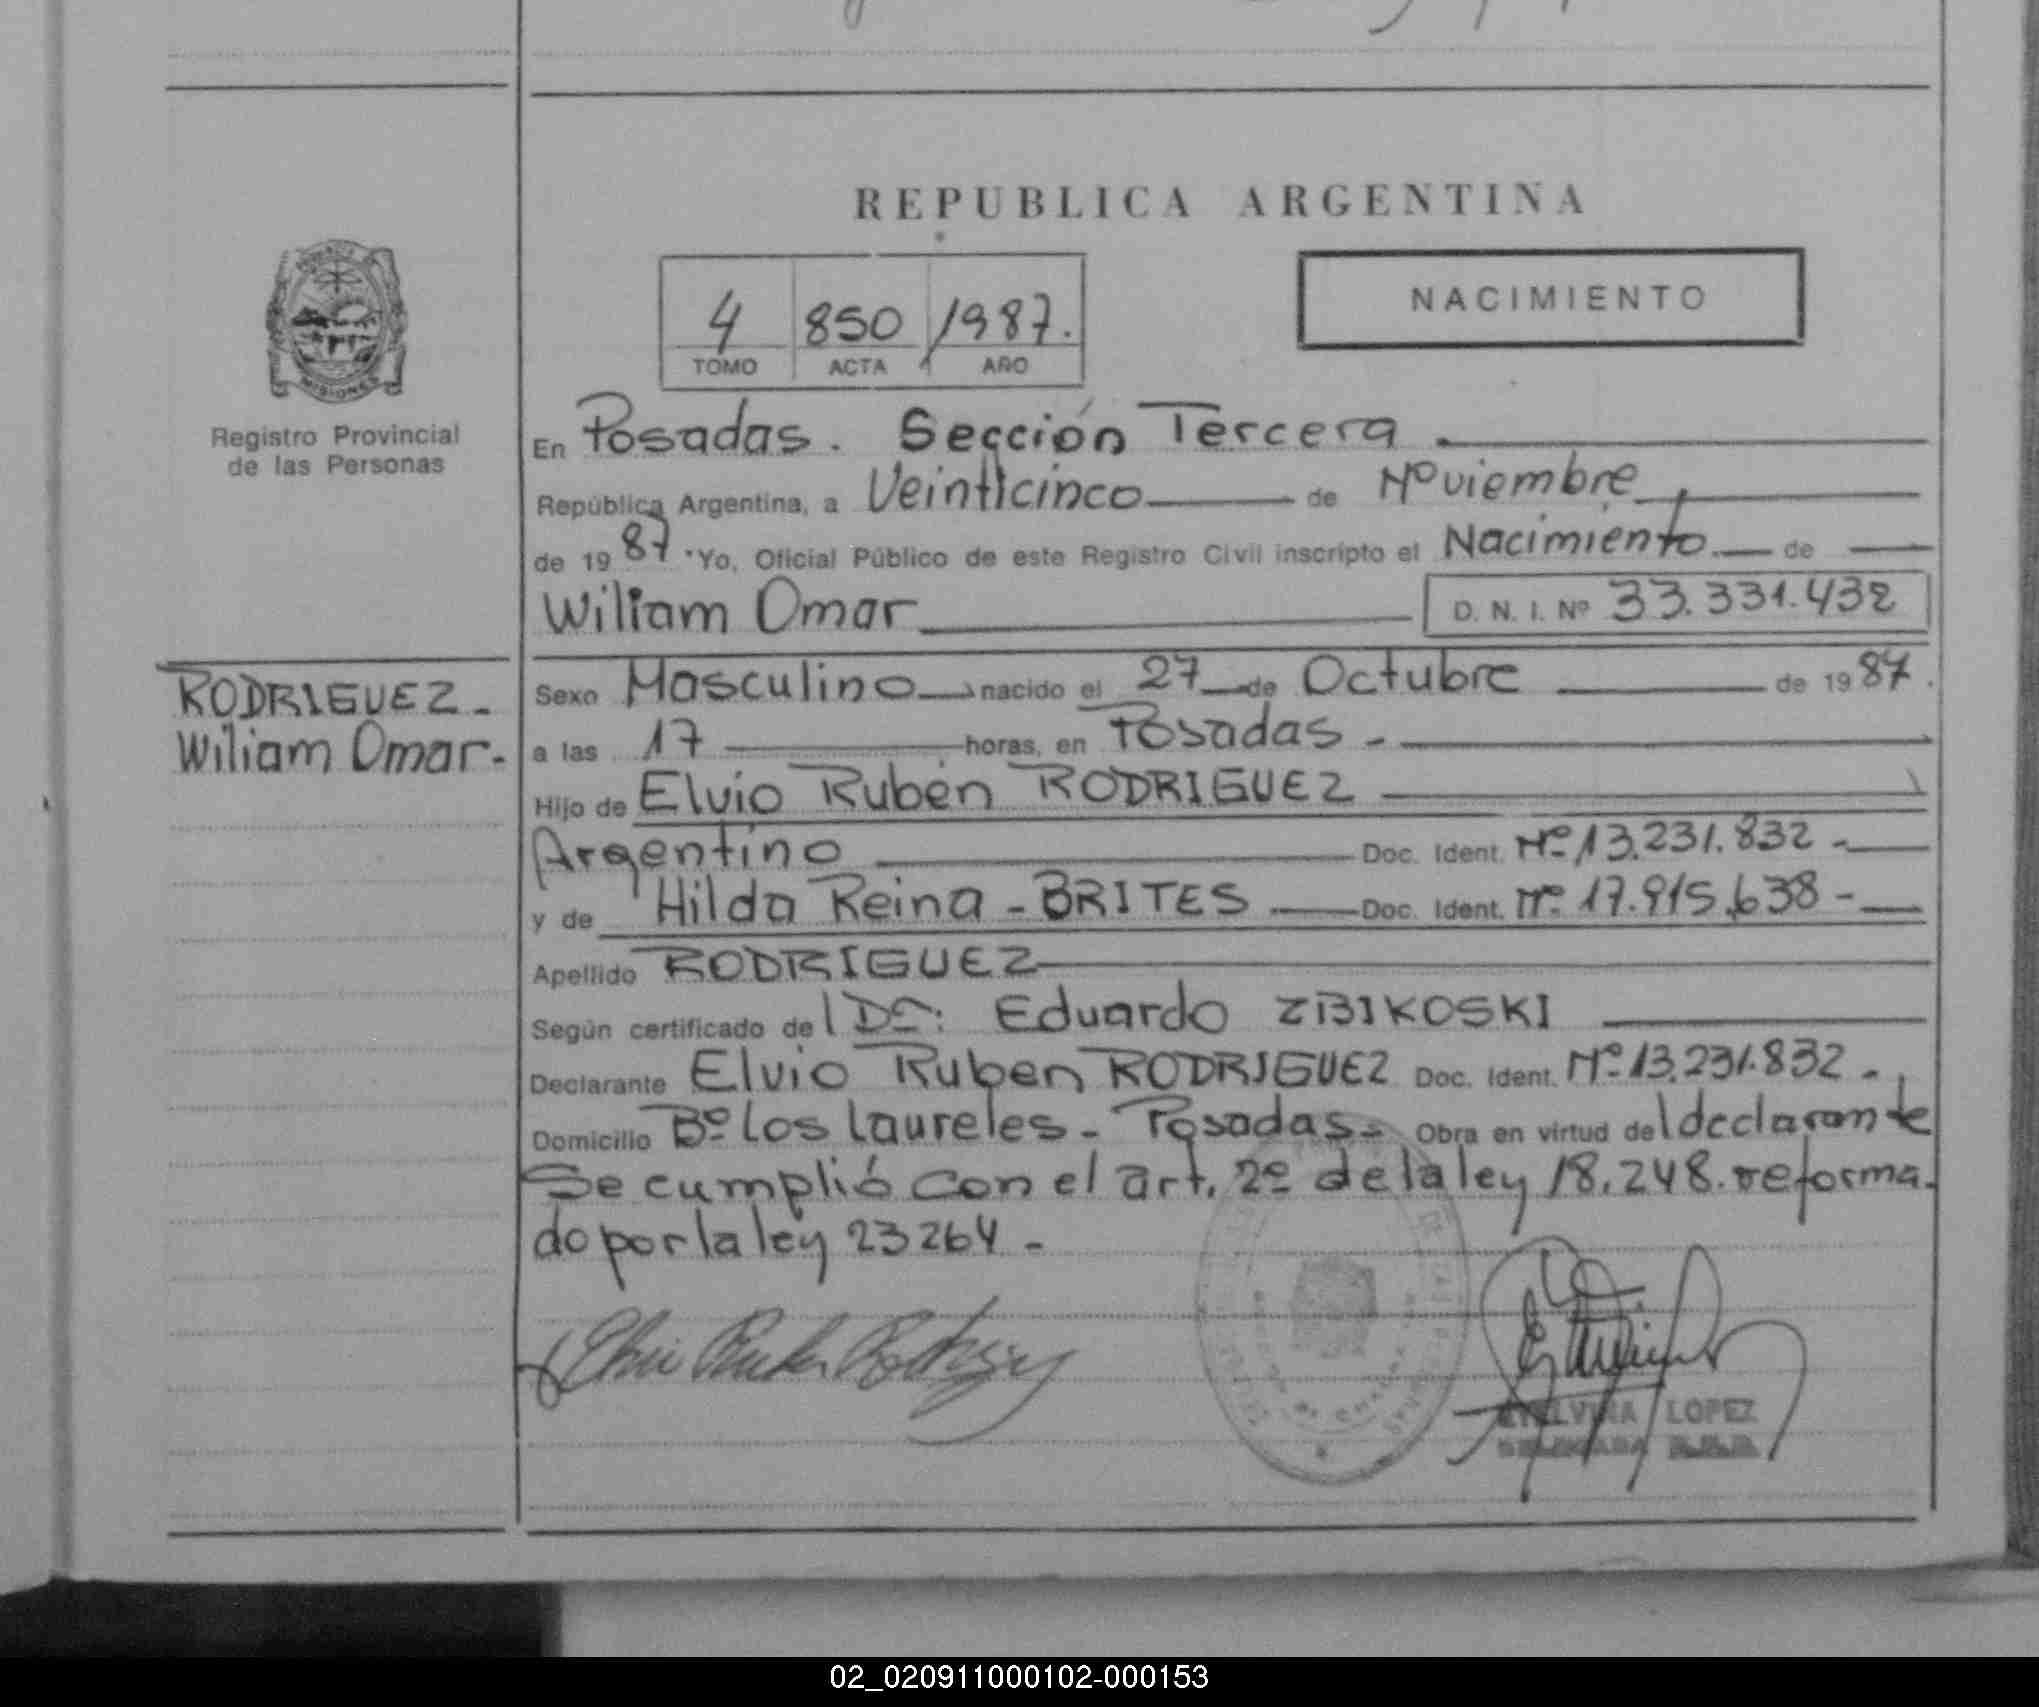 REPUBLICA ARGENTINA
4 850 1987.
TOMO ACTA AÑO
NACIMIENTO
MISIONES
Registro Provincial
de las Personas
En Posadas. Sección Tercera
República Argentina, a Veinticinco de Noviembre
de 1987. Yo, Oficial Público de este Registro Civil inscripto el Nacimiento de
Wiliam Omar D. N. I. Nº 33.331.432
RODRIGUEZ.
Wiliam Omar.
Sexo Masculino nacido el 27 de Octubre de 1987.
a las 17 horas, en Posadas -
Hijo de Elvio Rubén RODRIGUEZ
Argentino Doc. Ident. Nº 13.231.832 -
y de Hilda Reina - BRITES Doc. Ident. Nº 17.915.638 -
Apellido RODRIGUEZ
Según certificado del Dr: Eduardo ZBIKOSKI
Declarante Elvio Ruben RODRIGUEZ Doc. Ident. Nº 13.231.832 -
Domicilio Bº Los Laureles - Posadas - Obra en virtud del declarante
Se cumplió con el art. 2º de la ley 18.248. reforma-
do por la ley 23264 -
LOPEZ
02_020911000102-000153